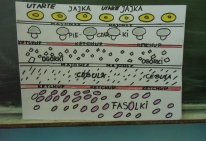 UTARTE JAJKA UTARTE JAJKA
MAJONEZ
PIE- CZAR- KI
KETCHUP KETCHUP KETCHUP
OGÓRKI OGÓRKI
MAJONEZ
CEBULA CEBULA
KETCHUP KETCHUP KETCHUP
FASOLKI